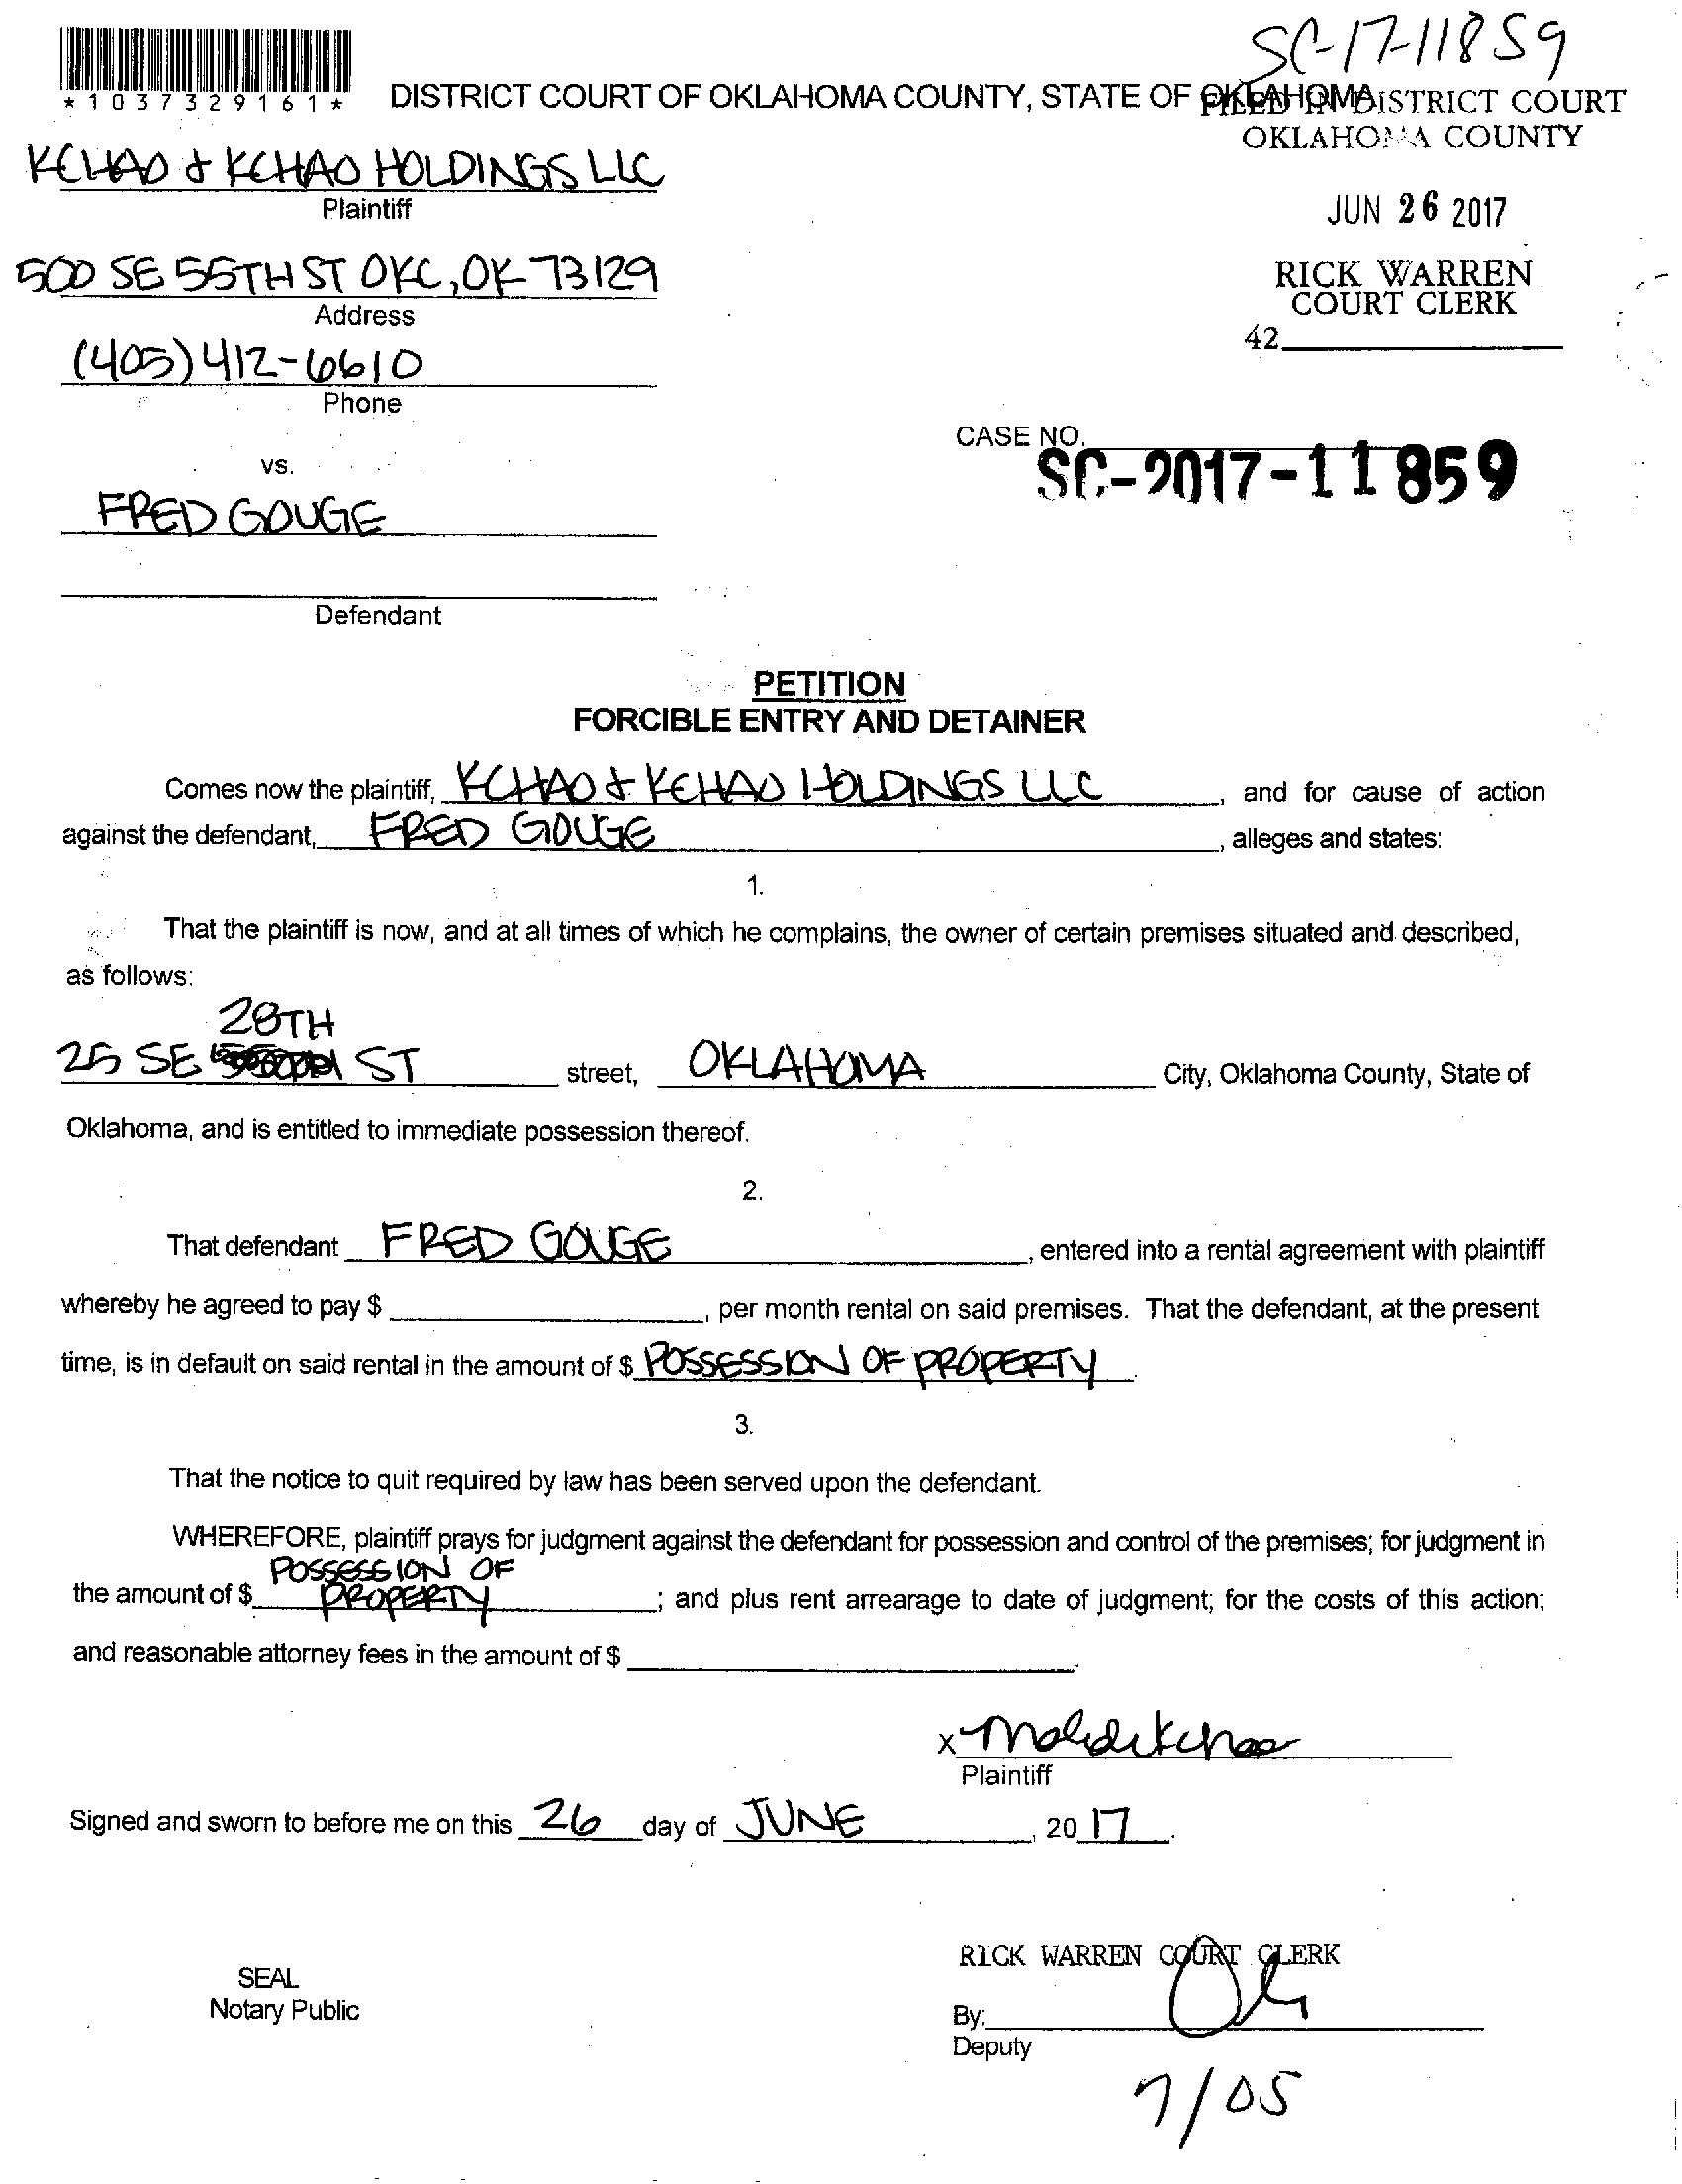 SC-17-11859
*1037329161*
DISTRICT COURT OF OKLAHOMA COUNTY, STATE OF OKLAHOMA
FILED IN DISTRICT COURT
OKLAHOMA COUNTY
KCHAO & KCHAO HOLDINGS LLC
Plaintiff
JUN 26 2017
500 SE 55TH ST OKC, OK 73129
Address
RICK WARREN
COURT CLERK
42
(405) 412-6610
Phone
CASE NO.
SC-2017-11859
vs.
FRED GOUGE
Defendant
PETITION
FORCIBLE ENTRY AND DETAINER
Comes now the plaintiff, KCHAO & KCHAO HOLDINGS LLC, and for cause of action
against the defendant, FRED GOUGE, alleges and states:
1.
That the plaintiff is now, and at all times of which he complains, the owner of certain premises situated and described,
as follows:
28TH
25 SE ST street, OKLAHOMA City, Oklahoma County, State of
Oklahoma, and is entitled to immediate possession thereof.
2.
That defendant FRED GOUGE, entered into a rental agreement with plaintiff
whereby he agreed to pay $ , per month rental on said premises. That the defendant, at the present
time, is in default on said rental in the amount of $ POSSESSION OF PROPERTY.
3.
That the notice to quit required by law has been served upon the defendant.
WHEREFORE, plaintiff prays for judgment against the defendant for possession and control of the premises; for judgment in
POSSESSION OF
the amount of $ PROPERTY; and plus rent arrearage to date of judgment; for the costs of this action;
and reasonable attorney fees in the amount of $ .
X
Plaintiff
Signed and sworn to before me on this 26 day of JUNE, 20 17.
RICK WARREN COURT CLERK
SEAL
Notary Public
By:
Deputy
7/05